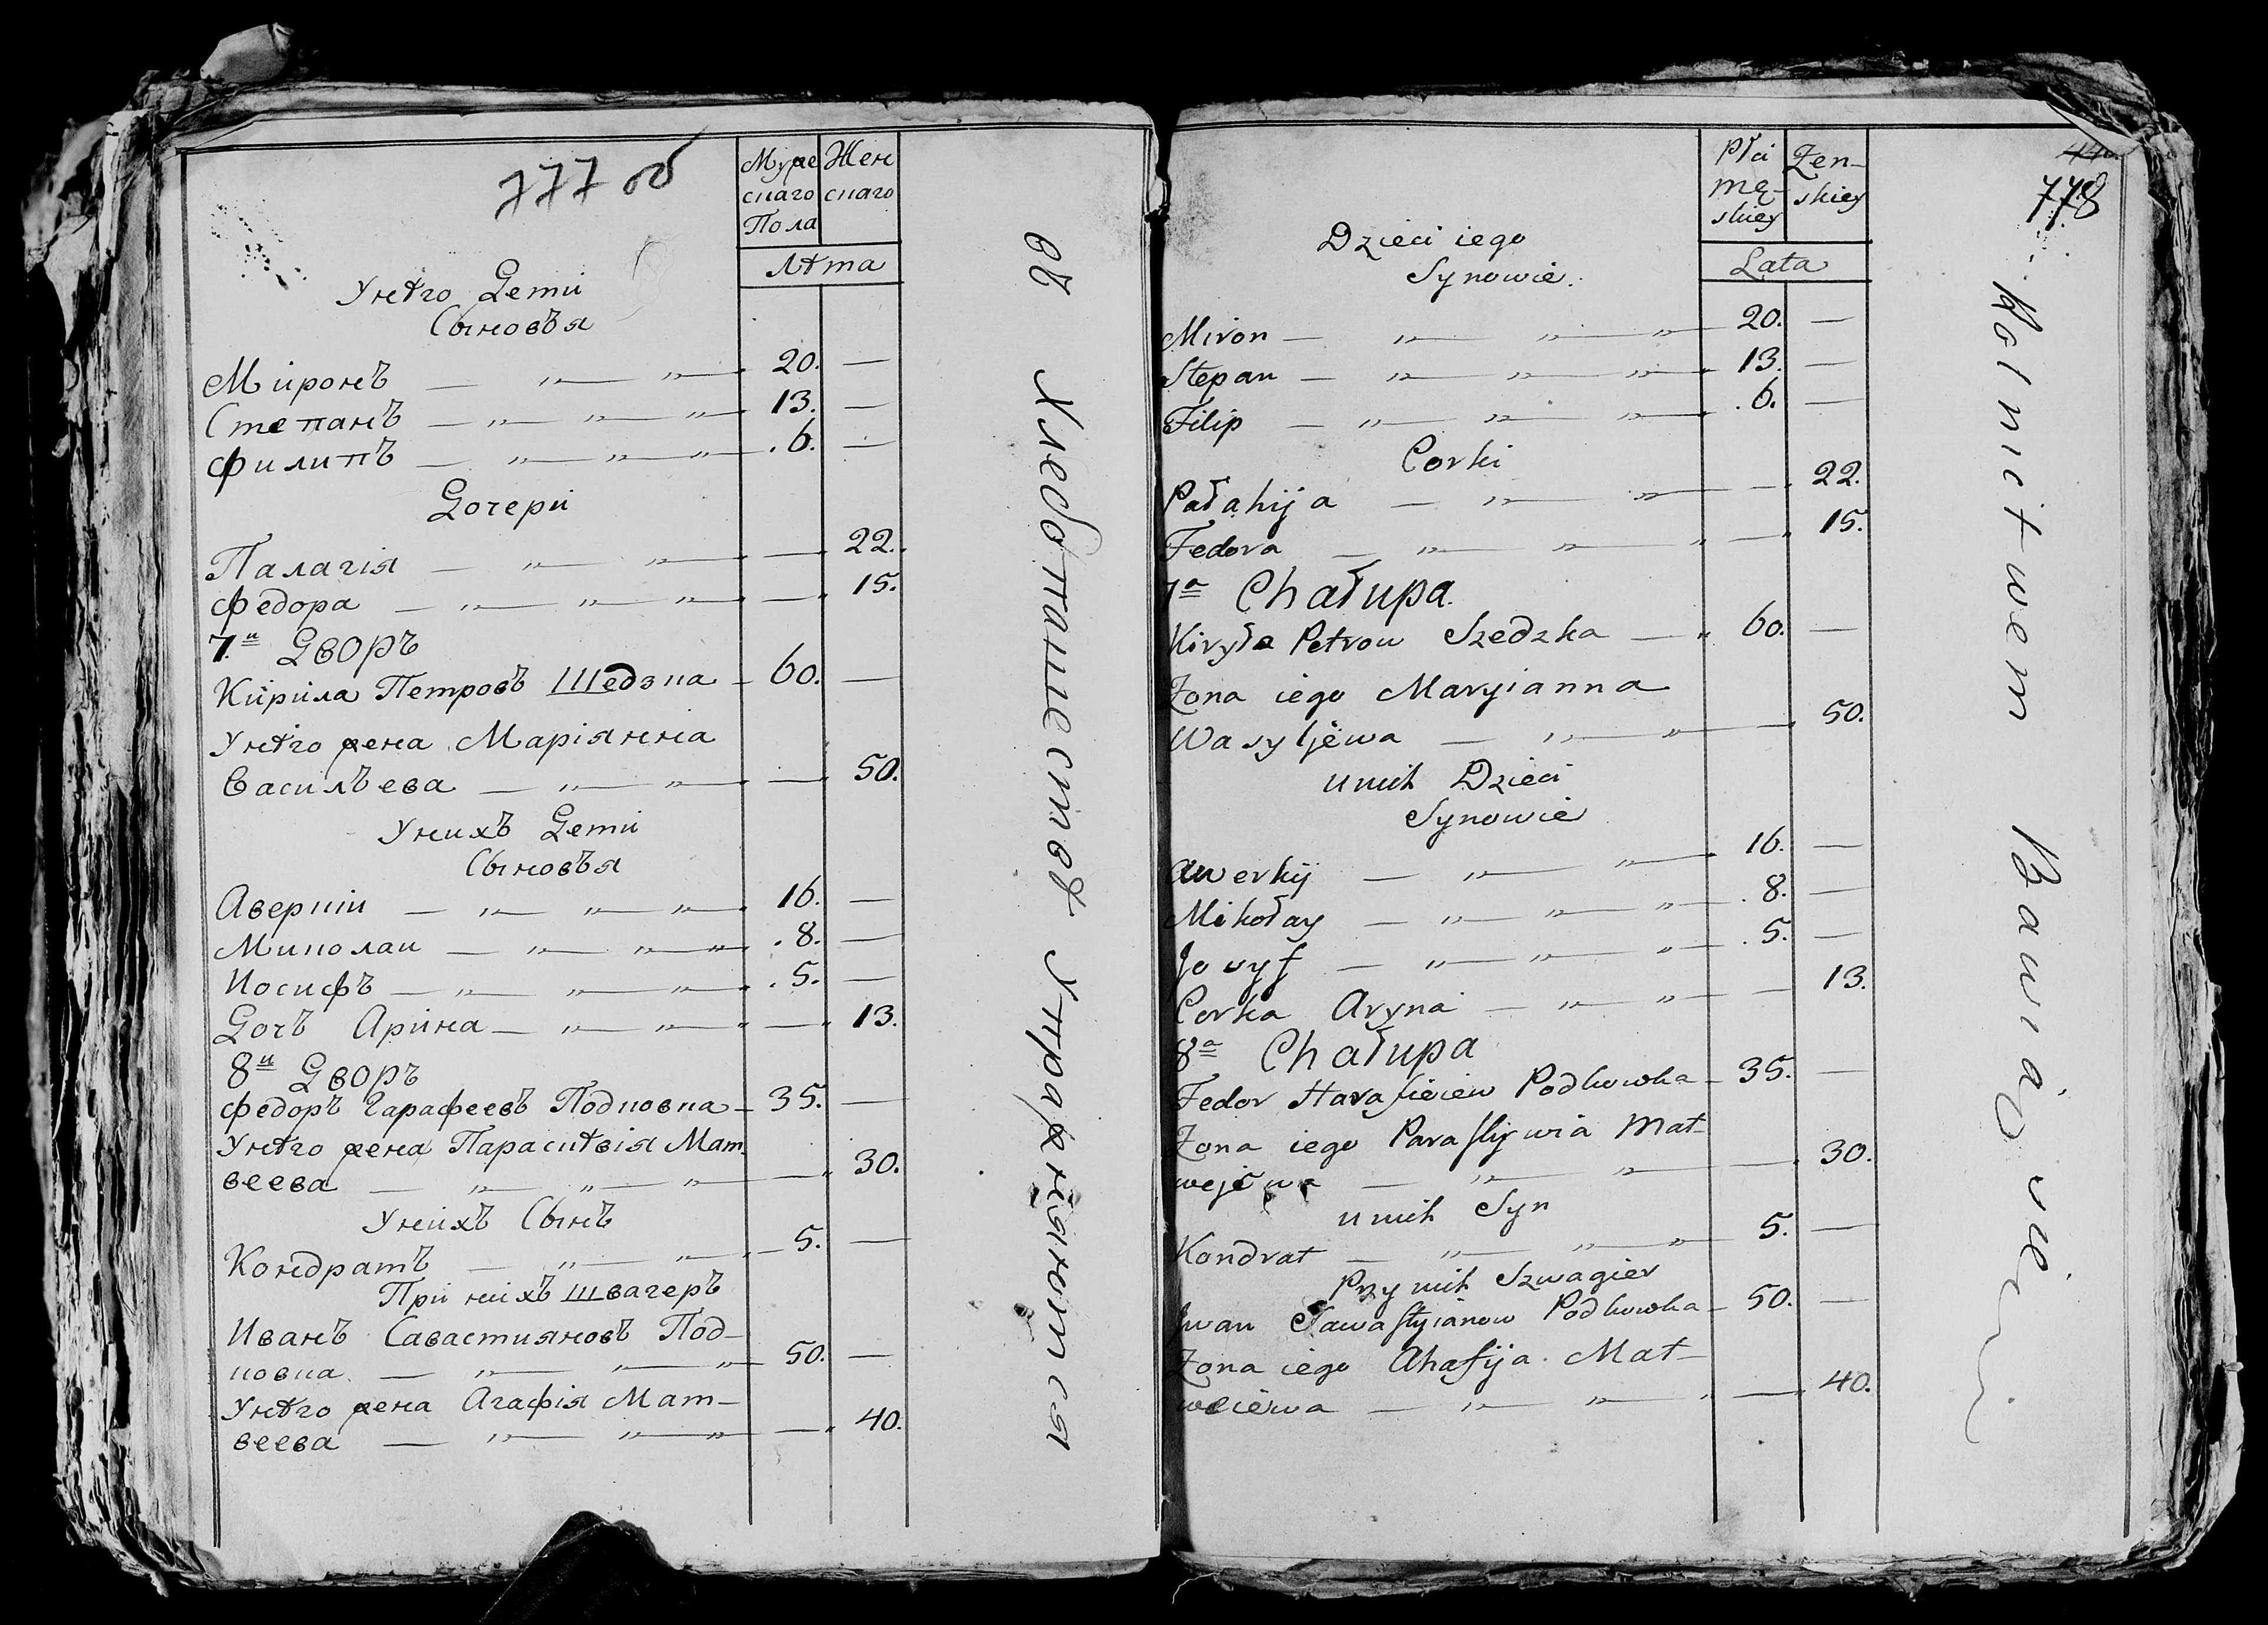 777 об
Муже
скаго
Пола
Жен
скаго
Лѣта
У нѣго Дети
Сыновъя
Миронъ — „ — „ — 20. —
Степанъ — „ — „ — „ — 13. —
Филипъ — „ — „ — „ — 6. —
Дочери
Палагія — „ — „ — — 22.
Федора — „ — „ — „ — — 15.
7.й Дворъ
Кирила Петровъ Шедзка — 60. —
У нѣго жена Маріянна
Василъева — „ — „ — — 50.
У нихъ Дети
Сыновъя
Аверкіи — „ — „ — „ — 16. —
Миколаи — „ — „ — „ — 8. —
Иосифъ — „ — „ — „ — 5. —
Дочъ Арина — „ — „ — — 13.
8й Дворъ
Федоръ Гарафеевъ Подковка — 35. —
У нѣго жена Параскѣвія Мат
веева — „ — „ — „ — — 30.
У нихъ Сынъ
Кондратъ — „ — „ — 5. —
При нихъ Швагеръ
Иванъ Савастияновъ Под-
ковка — „ — „ — „ — 50. —
У нѣго жена Агафія Мат-
веева — „ — „ — „ — — 40.
въ Хлебопашествѣ Упражняются
Płci
mę-
skiey
Zen-
skiey
778
Lata
Dzieci iego
Synowie.
Miron — „ — „ — „ — 20. —
Stepan — „ — „ — „ — 13. —
Filip — „ — „ — „ — 6. —
Corki
Pałahija — „ — „ — — 22.
Fedora — „ — „ — „ — 15.
7a Chałupa.
Kiryła Petrow Szedzka — „ 60. —
Zona iego Maryianna
Wasyljewa — „ — „ — — 50.
u nich Dzieci
Synowie
Awerkij — „ — „ — 16. —
Mikołay — „ — „ — „ — 8. —
Jozyf — „ — „ — „ — 5. —
Corka Aryna — „ — „ — — 13.
8a Chałupa
Fedor Harafieiew Podkowka — 35. —
Zona iego Paraskywia Mat-
wejewa — „ — „ — — 30.
u nich Syn
Kondrat — „ — „ — „ — 5. —
Przy nich Szwagier
Jwan Sawastyianow Podkowka — 50. —
Zona iego Ahafija Mat-
weiewa — „ — „ — „ — 40.
Rolnictwem Bawią się